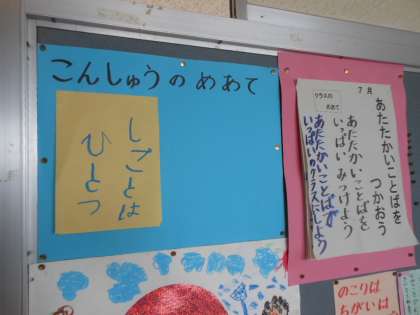 こんしゅうのめあて
しごとは
ひとつ
7月
クラスの
めあて
あたたかいことばを
つかおう
あたたかいことばを
いっぱいみつけよう
あたたかいことばが
いっぱいのクラスにしよう
のこりは
ちがいは